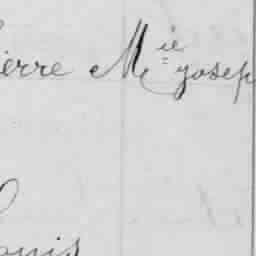 ierre M^ie Josep
ouis